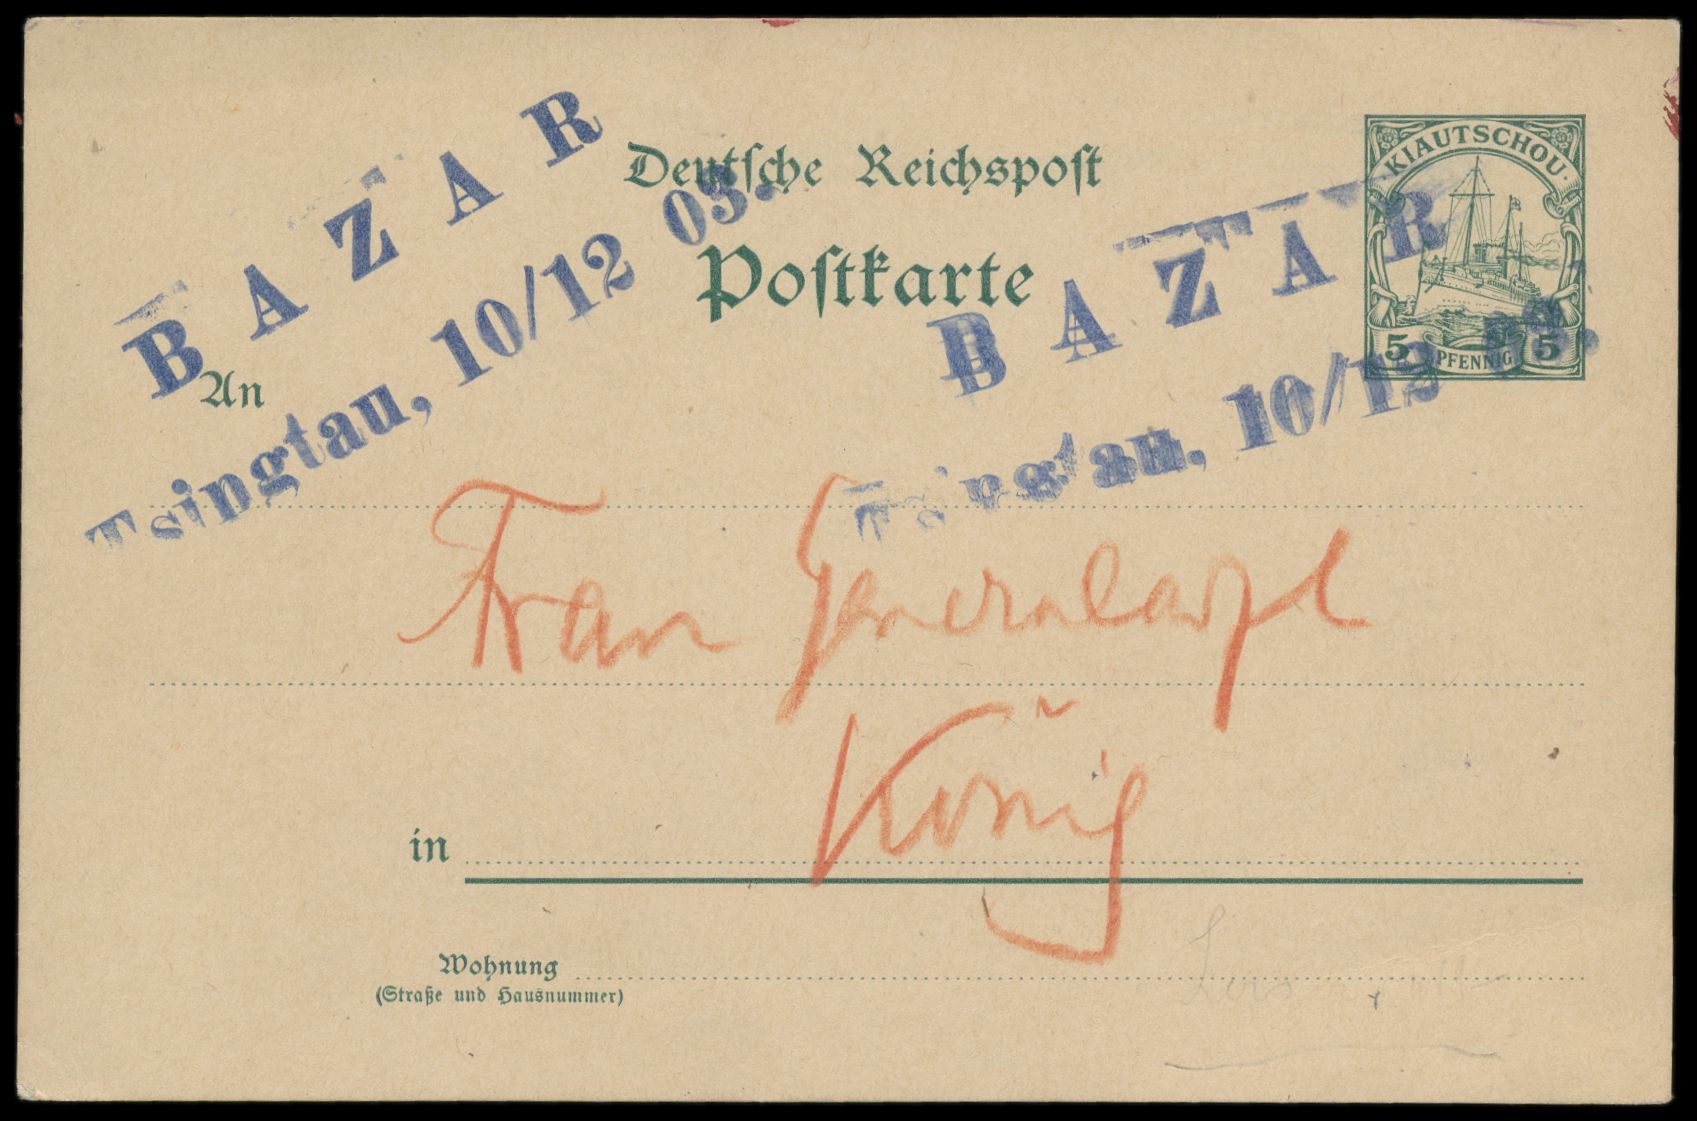 Deutsche Reichspost
Postkarte
KIAUTSCHOU
5 PFENNIG 5
BAZAR
Tsingtau, 10/12 03.
BAZAR
Tsingtau, 10/12 03.
An
Frau Generalarzt
König
in
Wohnung
(Straße und Hausnummer)